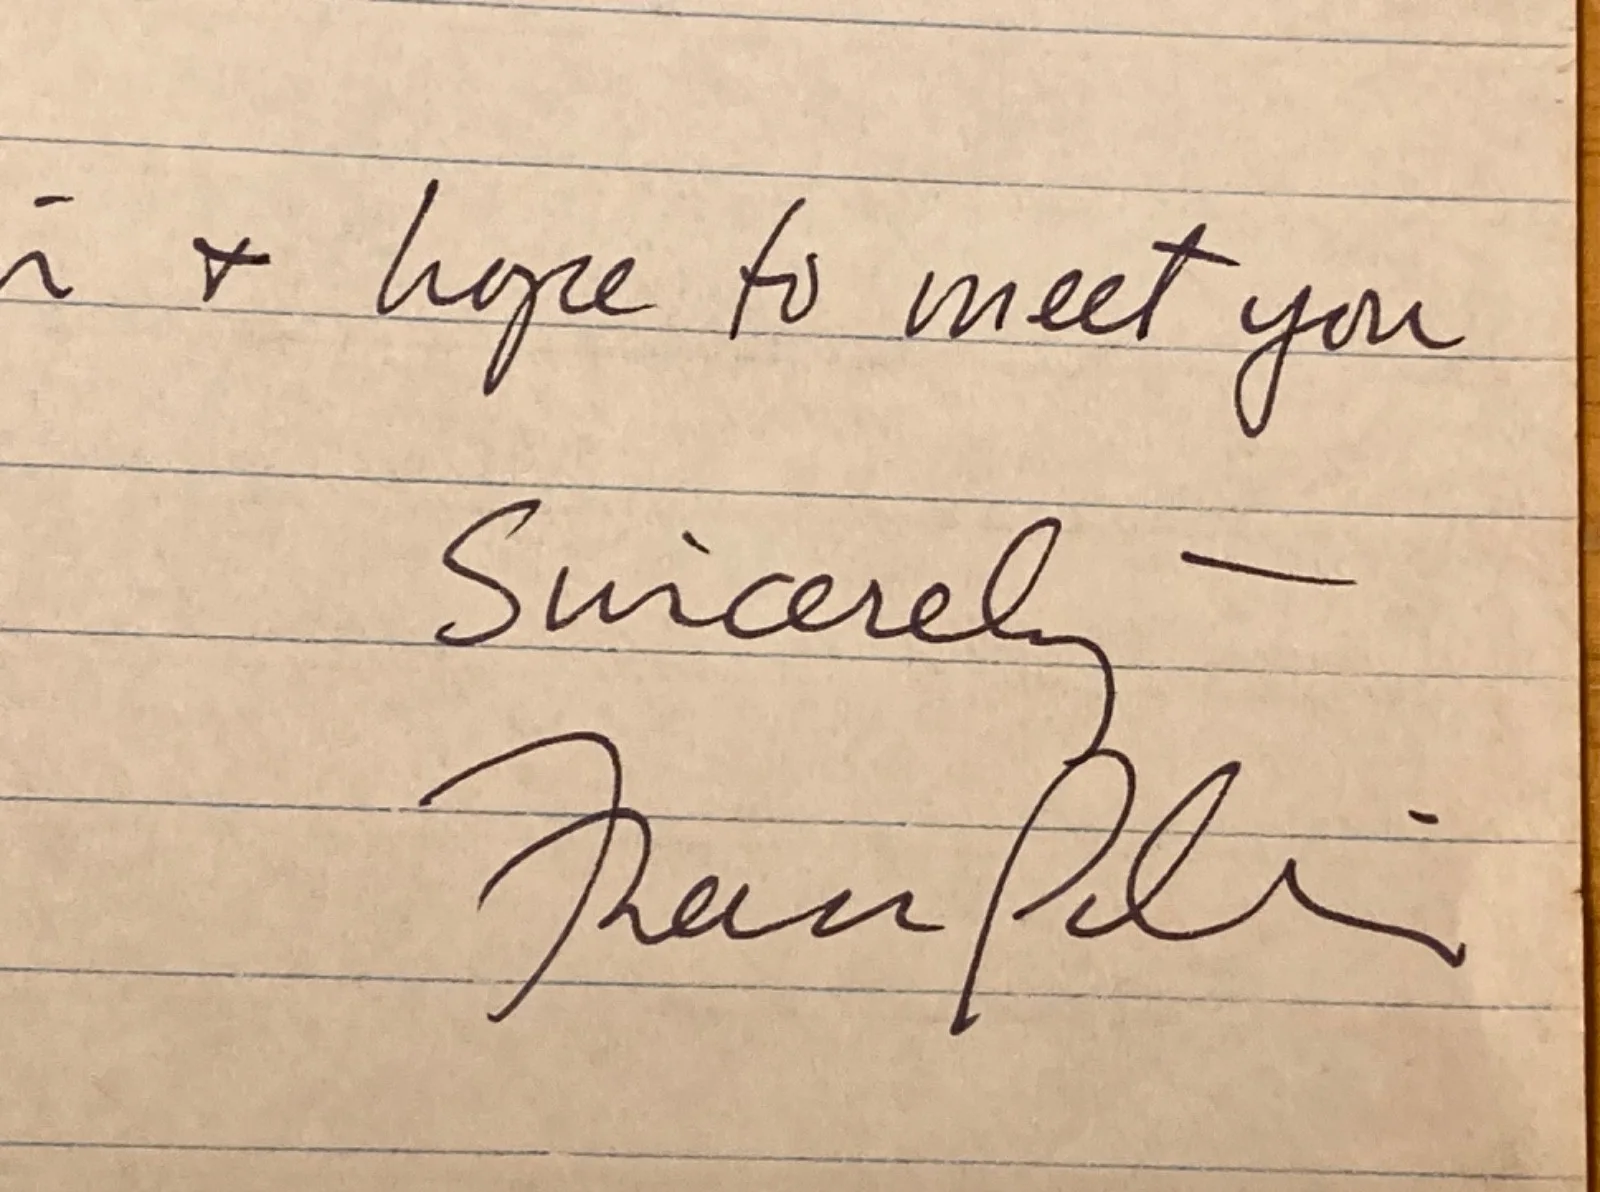 & hope to meet you
Sincerely —
Fran